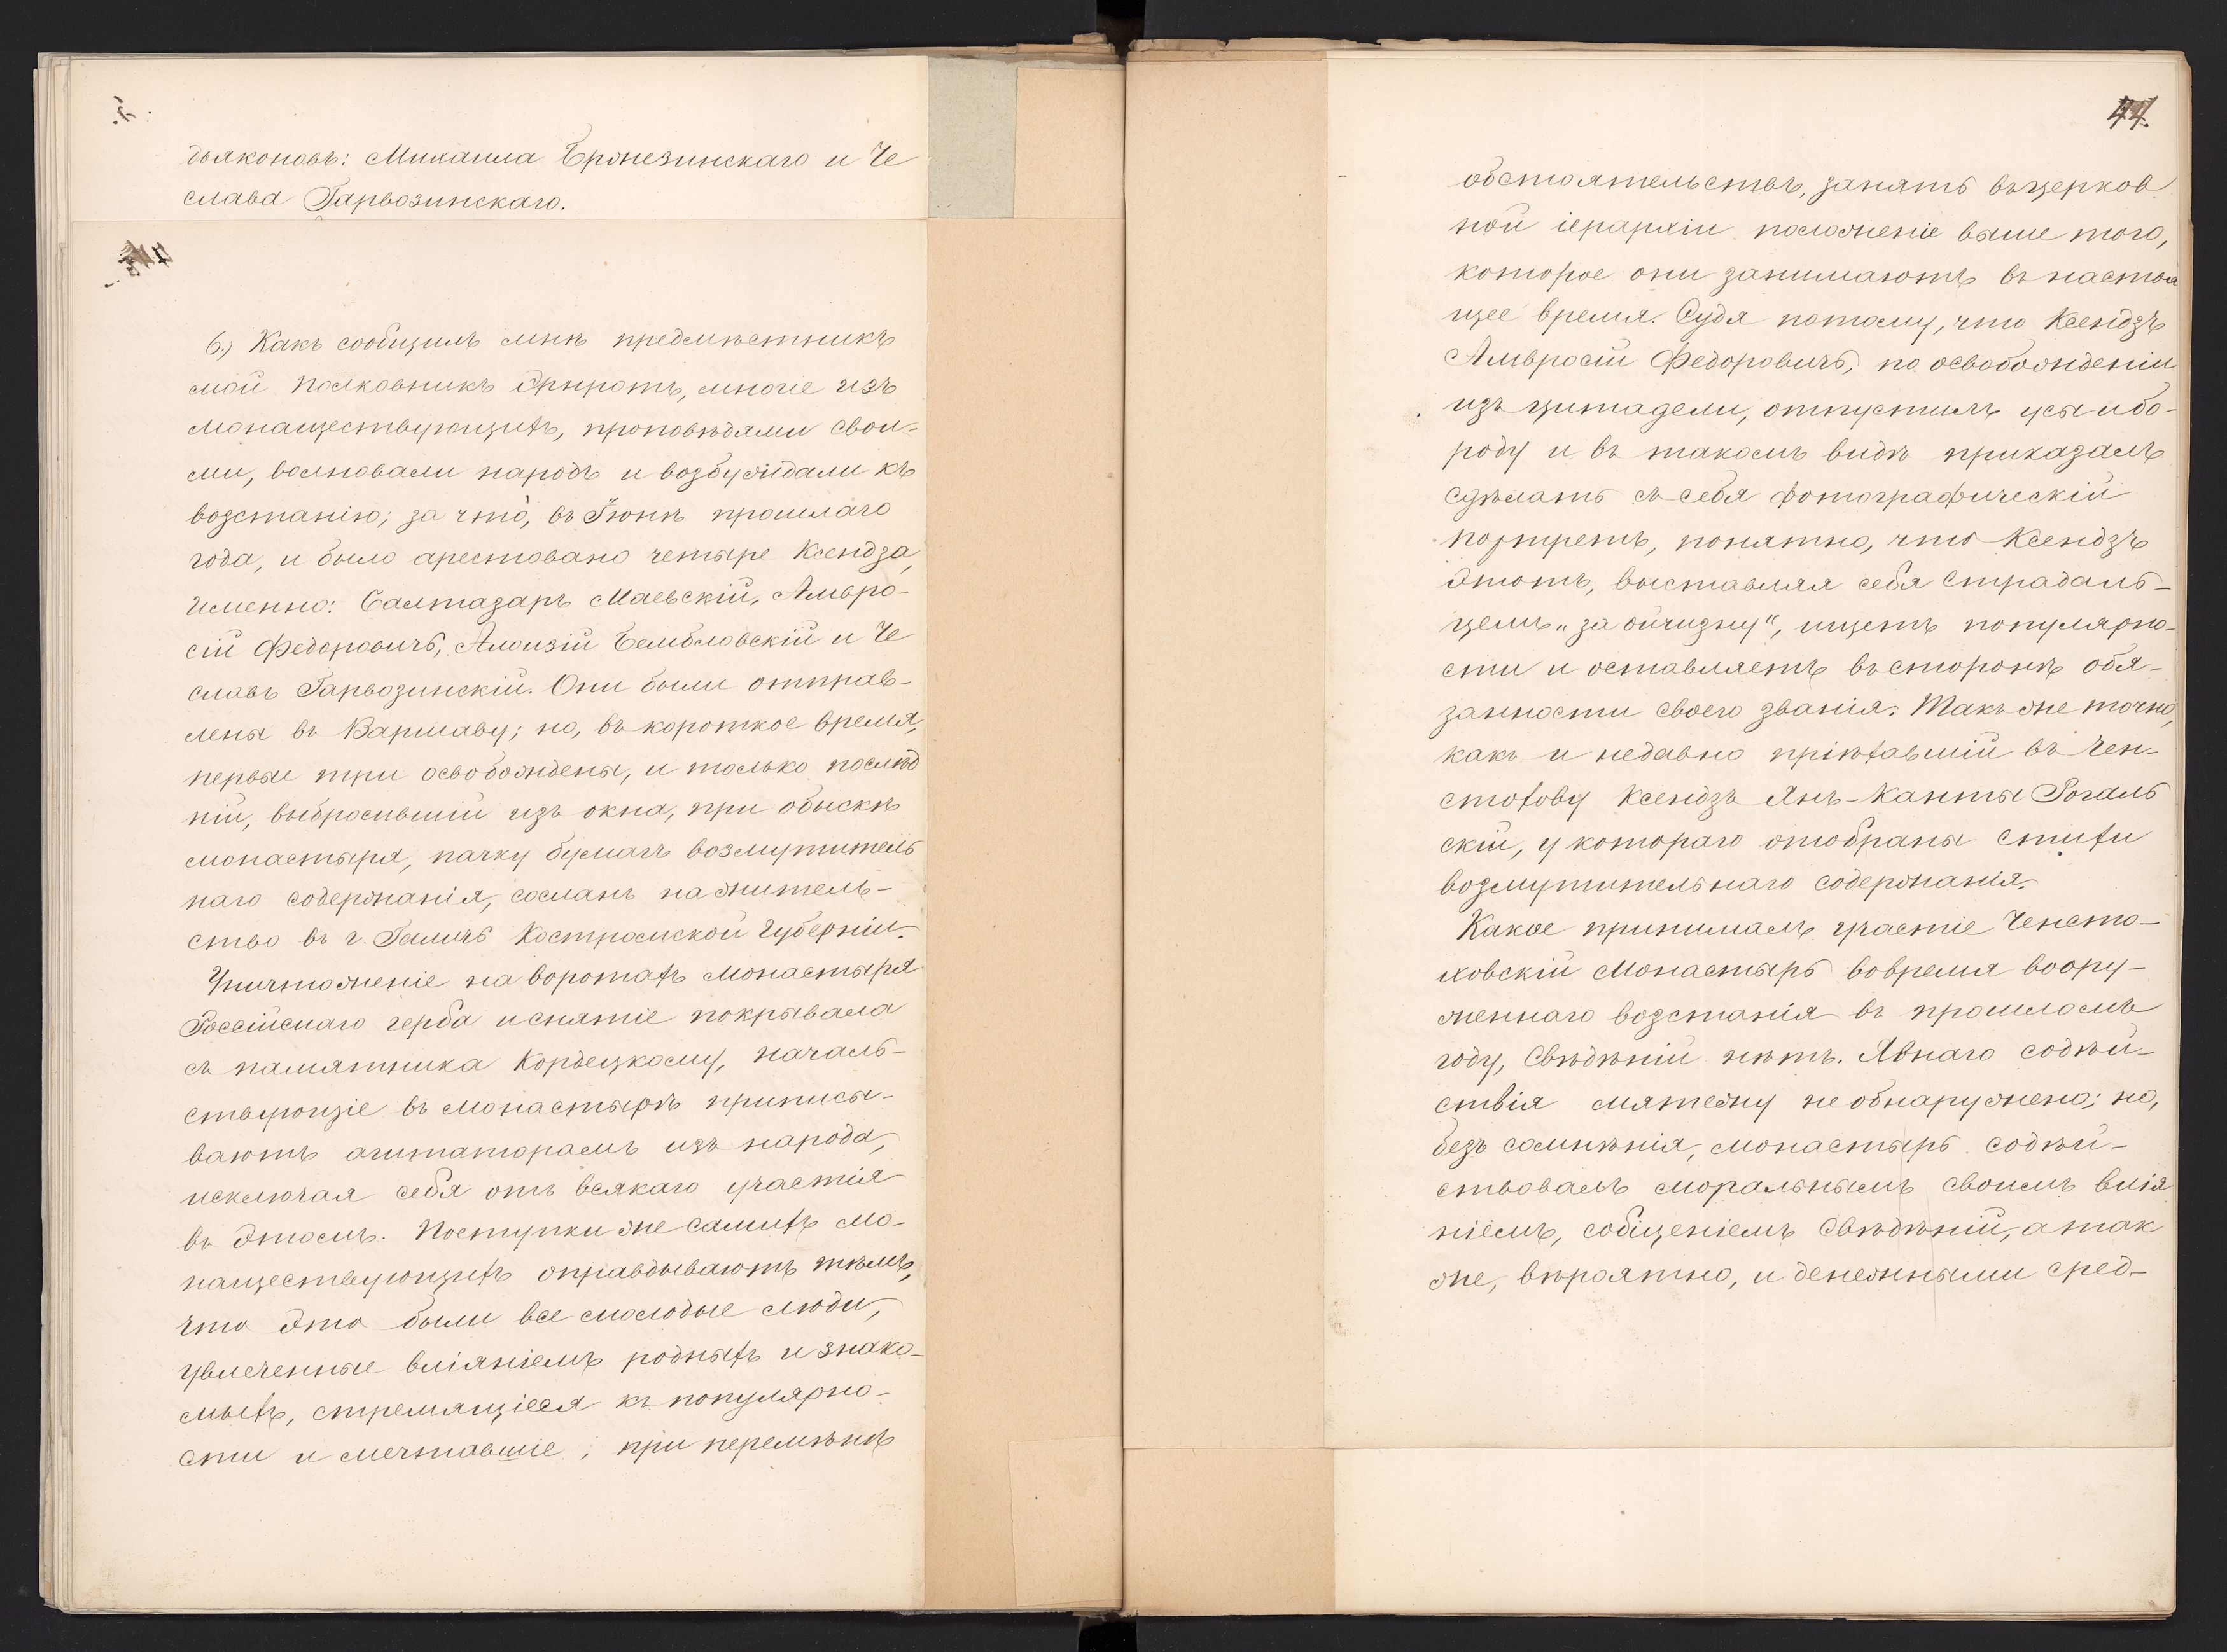 дьяконовъ: Михаила Бржезинскаго и Че
слава Гарвозинскаго.
6.) Какъ сообщилъ мнѣ предмѣстникъ
мой Полковникъ Эрнротъ, многіе изъ
монашествующихъ, проповѣдями свои-
ми, волновали народъ и возбуждали къ
возстанію; за что, въ Іюнѣ прошлаго
года, и было арестовано четыре Ксендза,
именно: Балтазаръ Маевскій, Амвро-
сій Федоровичъ, Алоизій Бембловскій и Че
славъ Гарвозинскій. Они были отправ-
лены въ Варшаву; но, въ короткое время,
первые три освобождены, и только послѣд
ній, выбросившій изъ окна, при обыскѣ
монастыря, пачку бумагъ возмутитель
наго содержанія, сосланъ на житель-
ство въ г. Галичъ Костромской Губерніи.
Уничтоженіе на воротахъ Монастыря
Россійскаго герба и снятіе покрывала
съ памятника Кордецкому, началь-
ствующіе въ монастырѣ приписы-
ваютъ агитаторамъ изъ народа,
исключая себя отъ всякаго участія
въ этомъ. Поступки же самихъ мо-
нашествующихъ оправдываютъ тѣмъ,
что это были все молодые люди,
увлеченные вліяніемъ родныхъ и знако-
мыхъ, стремящіеся къ популярно-
сти и мечтавшіе, при перемѣнѣ
44.
обстоятельствъ, занять въ церков
ной іерархіи положеніе выше того,
которое они занимаютъ въ настоя
щее время. Судя потому, что Ксендзъ
Амвросій Федоровичъ, по освобожденіи
изъ цитадели, отпустилъ усы и бо-
роду и въ такомъ видѣ приказалъ
сдѣлать съ себя фотографическій
портретъ, понятно, что Ксендзъ
этотъ, выставляя себя страдаль-
цемъ „за ойчизну“, ищетъ популярно-
сти и оставляетъ въ сторонѣ обя-
занности своего званія. Такъ же точно,
какъ и недавно пріѣхавшій въ Чен-
стохову Ксендзъ Янъ-Канты Рогаль
скій, у котораго отобраны стихи
возмутительнаго содержанія.
Какое принималъ участіе Ченсто-
ховскій Монастырь вовремя воору-
женнаго возстанія въ прошломъ
году, свѣдѣній нѣтъ. Явнаго содѣй-
ствія мятежу не обнаружено; но,
безъ сомнѣнія, монастырь содѣй-
ствовалъ моральнымъ своимъ влія
ніемъ, собщеніемъ свѣдѣній, а так
же, вѣроятно, и денежными сред-